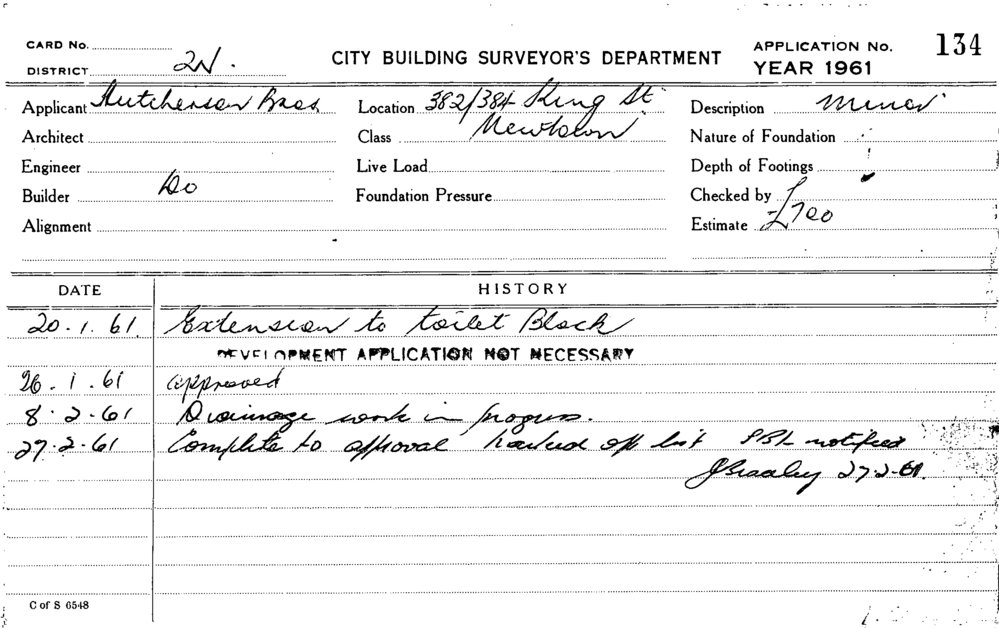 CARD No.
DISTRICT 2N.
CITY BUILDING SURVEYOR'S DEPARTMENT
APPLICATION No. 134
YEAR 1961
Applicant Hutcherson Bros
Location 382/384 King St
Description Minor
Architect
Class Newtown
Nature of Foundation
Engineer
Live Load
Depth of Footings
Builder Do
Foundation Pressure
Checked by
Alignment
Estimate £700
DATE HISTORY
20.1.61 Extension to toilet Block
DEVELOPMENT APPLICATION NOT NECESSARY
26.1.61 approved
8.2.61 Drainage work in progress.
27.2.61 Complete to approval marked off list notified
27.2.61.
C of S 6548